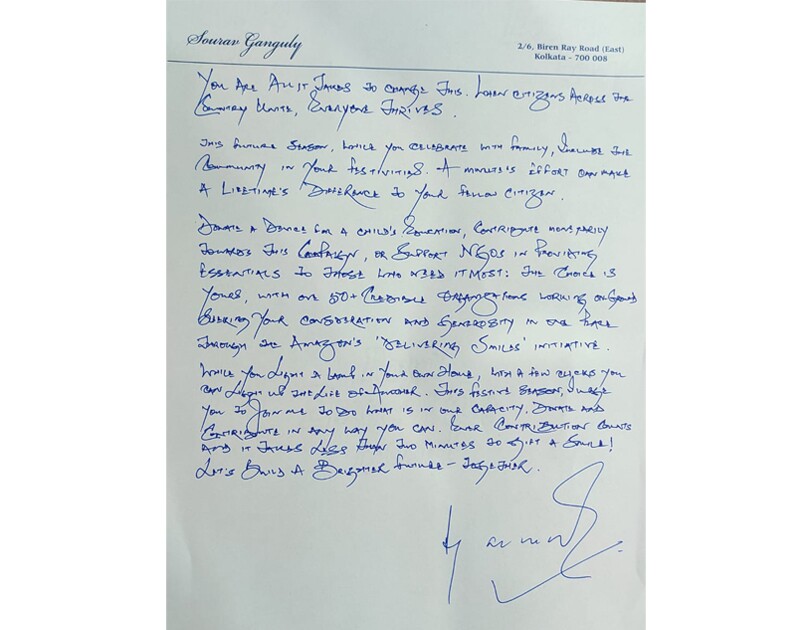 Sourav Ganguly
2/6, Biren Ray Road (East)
Kolkata - 700 008
You Are All it Takes to change This. When citizens Across the
Country Unite, Everyone Thrives.
This future season, while you celebrate with family, Include the
Community in Your festivities. A minute's effort can make
A Lifetime's Difference to Your fellow Citizen.
Donate a Device for a child's Education, Contribute monetarily
Towards this Campaign, or Support NGOs in Providing
Essentials to those who need it most: The Choice is
Yours, with over 50+ Credible Organizations working on Ground
Seeking Your consideration and Generosity in one Place
Through the Amazon's 'Delivering Smiles' initiative.
While You Light a Lamp in Your own Home, with a few clicks you
can Light up the Life of Another. This festive Season, I urge
you to Join me to do what is in our capacity. Donate and
Contribute in any way you can. Every Contribution counts
And it takes Less than Two minutes to gift a Smile!
Let's Build a Brighter future - Together.